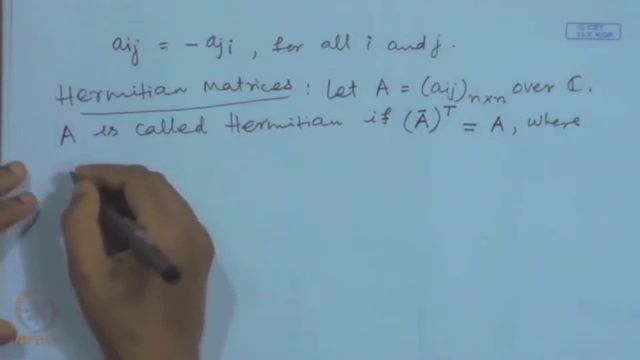 aij = - aji , for all i and j.
Hermitian Matrices : Let A = (aij)n×n over ℂ.
A is called Hermitian if (Ā)ᵀ = A, where